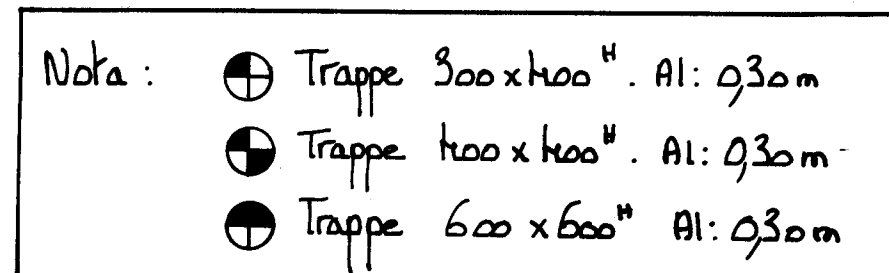 Nota : Trappe 300 x 400 H. Al: 0,30 m
Trappe 400 x 400 H. Al: 0,30 m
Trappe 600 x 600 H Al: 0,30 m